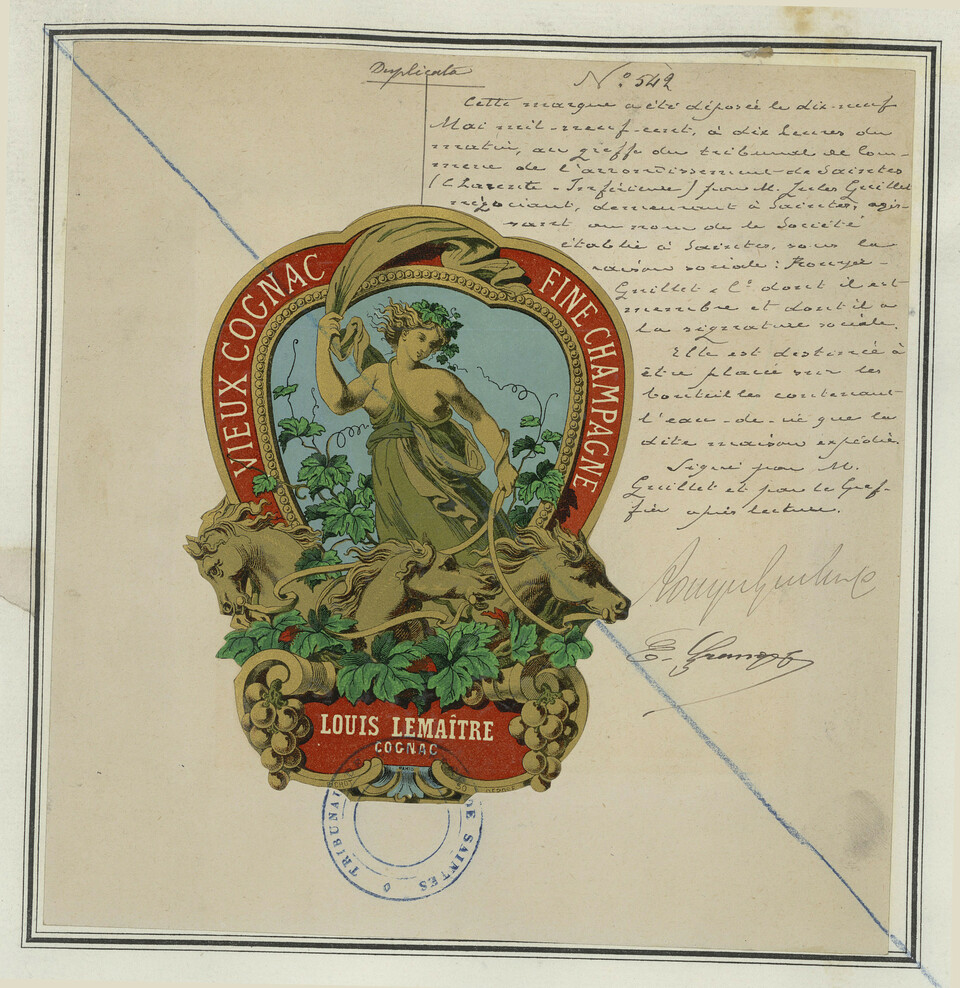 Duplicata
N° 542
Cette marque a été déposée le dix-neuf
Mai mil-neuf-cent, à dix heures du
matin, au greffe du tribunal de Com-
merce de l'arrondissement de Saintes
(Charente-Inférieure) par M. Jules Guillet
négociant, demeurant à Saintes, agis-
sant au nom de la Société
établie à Saintes, sous la
raison sociale : Rouyer-
Guillet & Cⁱᵉ dont il est
membre et dont il a
la signature sociale.
Elle est destinée à
être placée sur les
bouteilles contenant
l'eau-de-vie que la
dite maison expédie.
Signé par M.
Guillet et par le Gref-
fier après lecture.
VIEUX COGNAC
FINE CHAMPAGNE
LOUIS LEMAÎTRE
COGNAC
PARIS
TRIBUNAL DE SAINTES